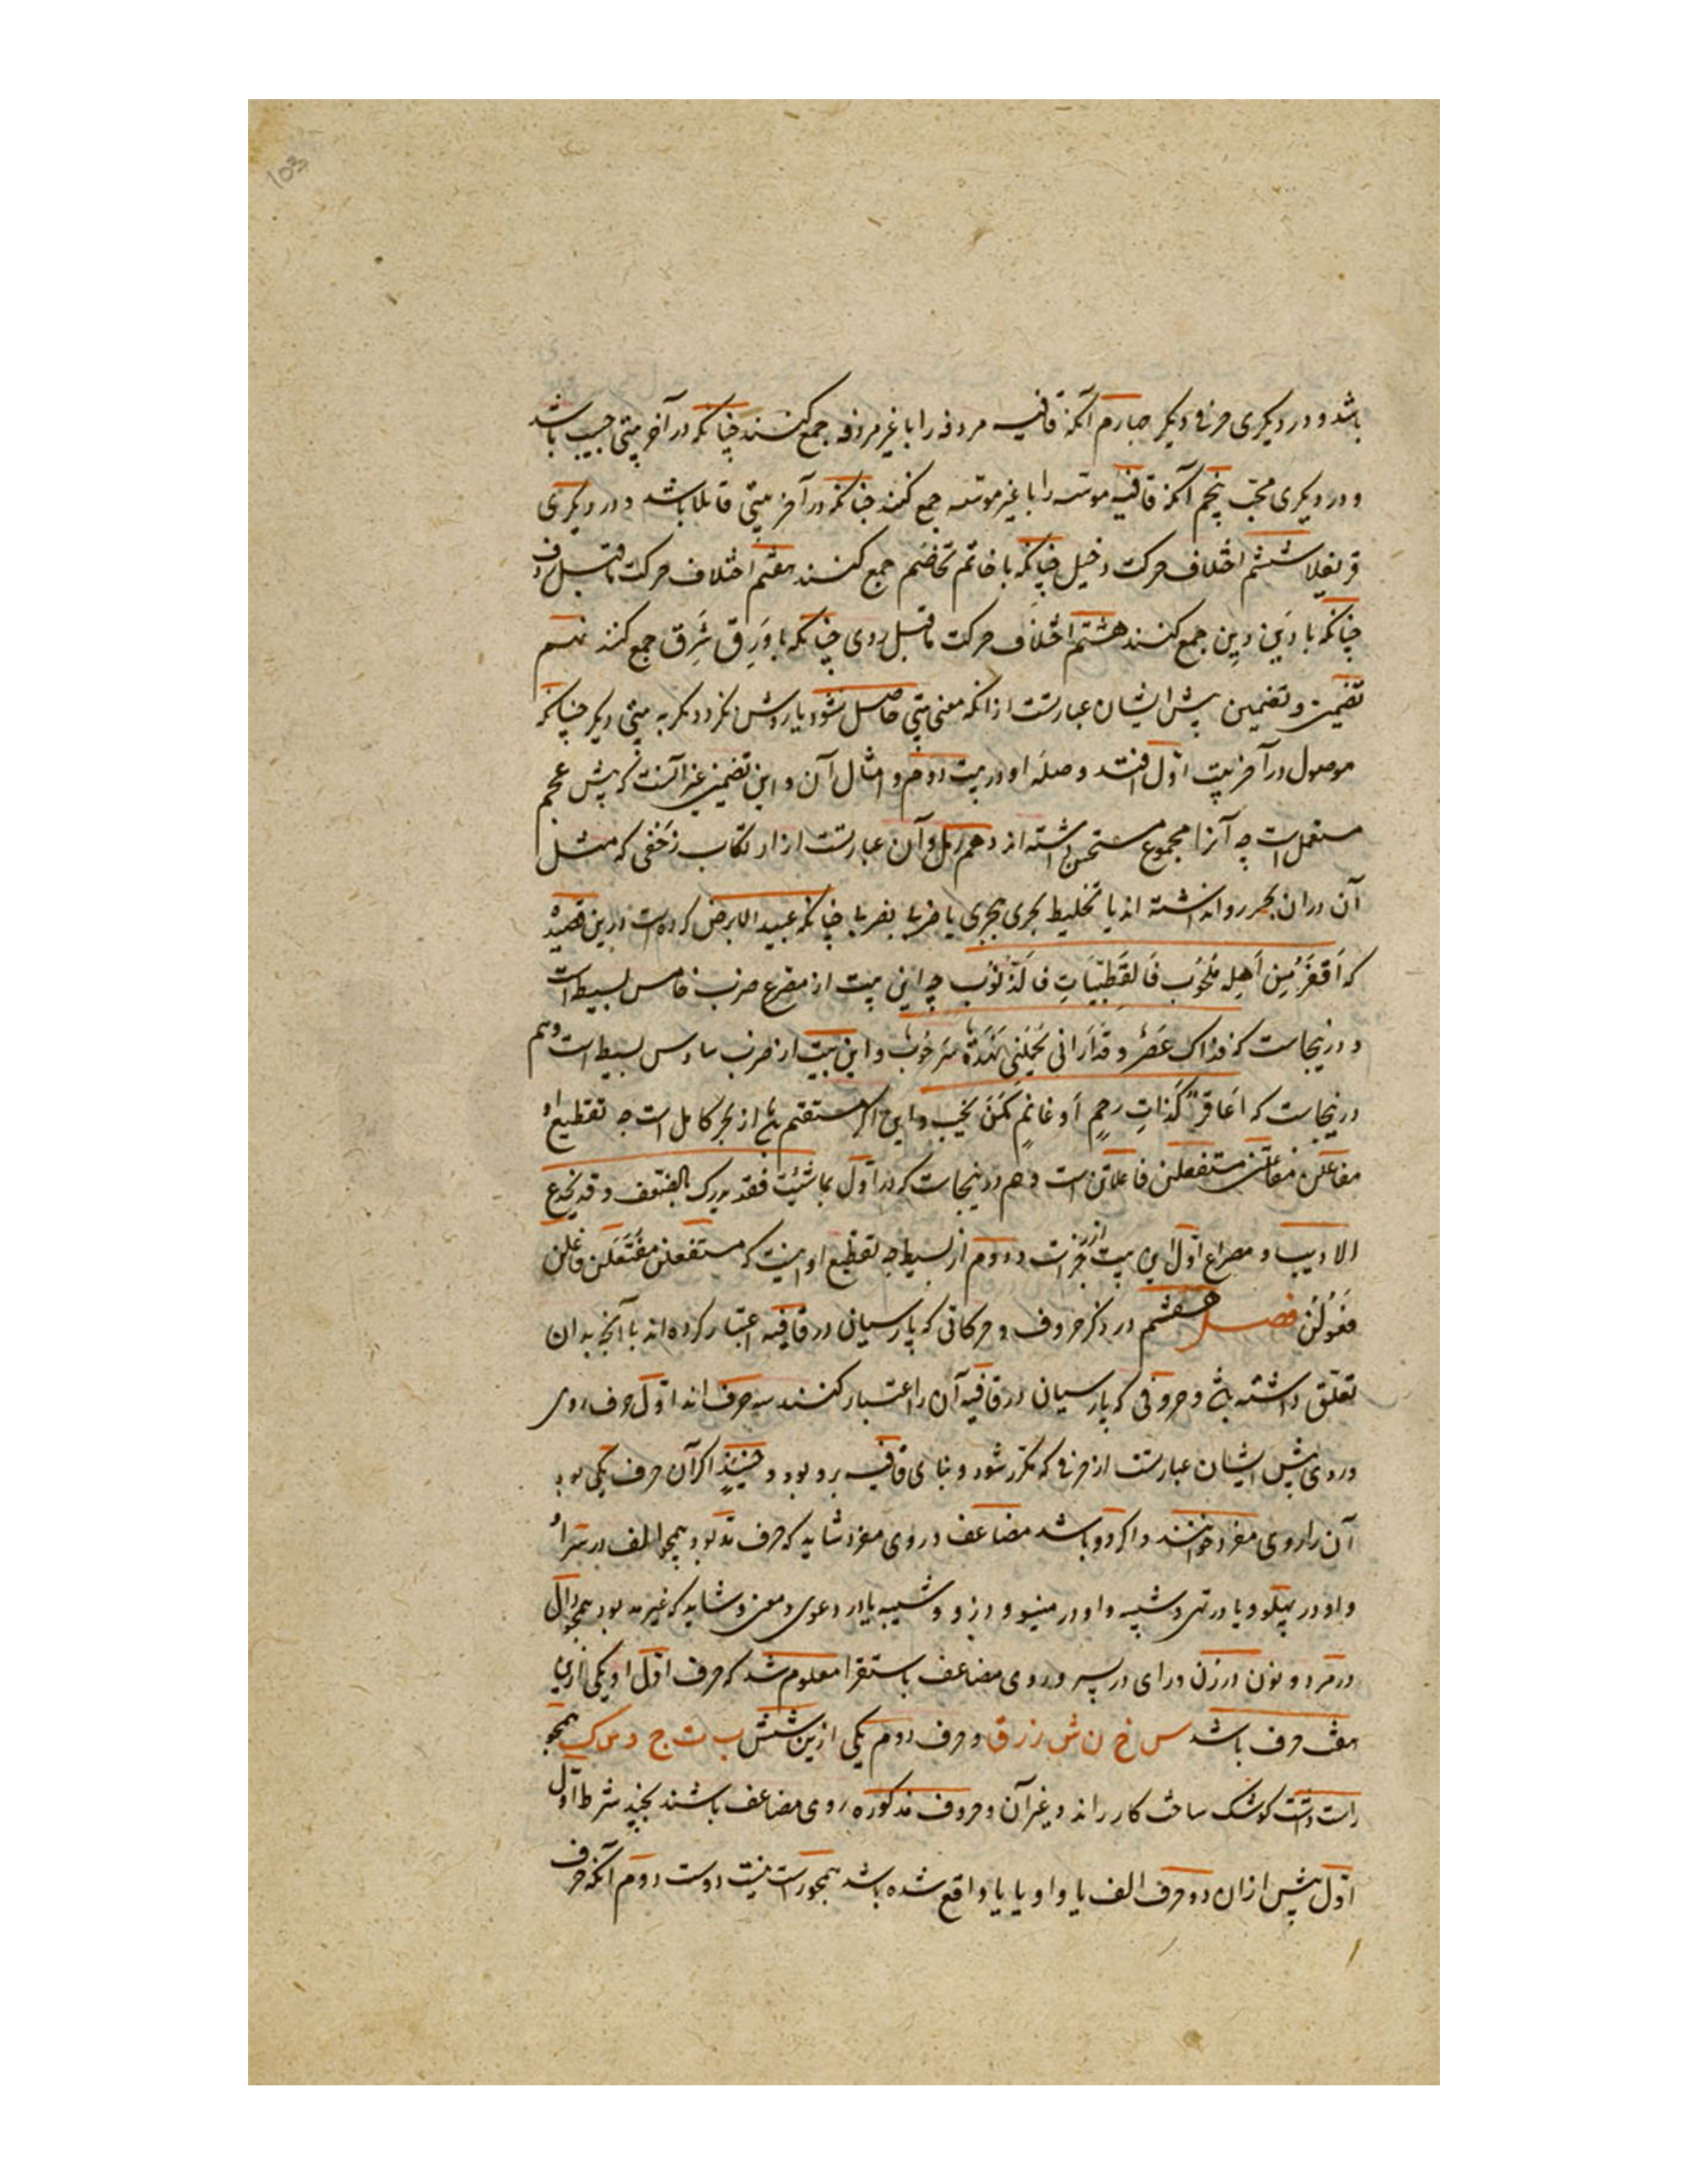 103
باشد و در دیکری حرفی دیکر چهارم آنکه قافیه مردفه را با غیر مردفه جمع کنند چنانکه در آخر بیتی حبیب باشد
و در دیکری محب پنجم آنکه قافیه موسسه را با غیر موسسه جمع کنند چنانکه در آخر بیتی قائلا باشد و در دیکری
قرنفلا ششم اختلاف حرکت دخیل چنانکه با خاتم تخاصم جمع کنند هفتم اختلاف حرکت ماقبل ردف
چنانکه با دَین دِین جمع کنند هشتم اختلاف حرکت ماقبل روی چنانکه با وَرِق شَرَق جمع کنند نهم
تضمین و تضمین پیش ایشان عبارتست از آنکه معنی بیتی حاصل نشود یا روشن نکردد مکر به بیتی دیکر چنانکه
موصول در آخر بیت اول افتد و صله او در بیت دوم و امثال آن و این تضمین غیر آنست که پیش عجم
مستعمل است چه آنرا مجموع مستحسن داشته اند دهم رمل و آن عبارتست از ارتکاب زحفی که مثل
آن در ان بحر روا نداشته اند یا تخلیط بحری ببحری یا ضربی بضربی چنانکه عبید الابرص کرده است درین قصیده
که اَقفَرَ مِن اَهلِه مَلحُوب فَالقُطَبِیّاتِ فَالذَّنُوب چه این بیت از مصرع ضرب خامس بسیط است
و درینجاست که فذاک عَصرٌ و قد اَرانی تَحمِلنی نَهدَةٌ سُرحُوب و این بیت از ضرب سادس بسیط است و هم
درینجاست که اَعاقِرٌ کَذاتِ رِحمٍ اَو غانِمٌ کَمَن یَخیب و این اکر مستقیم باشد از بحر کامل است چه تقطیع او
مفاعلن مفاعلتن مستفعلن فاعلاتن است و هم درینجاست که در اول بما شئت فقد یدرک بالضعف و قد یخدع
الاریب و مصراع اول این بیت از رجز است و دوم از بسیط چه تقطیع او اینست که مستفعلن مفتعلن فاعلن
فَعُولُن فصل هشتم در ذکر حروف و حرکاتی که پارسیان در قافیه اعتبار کرده اند با آنچه بدان
تعلق داشته باشد و حروفی که پارسیان در قافیه آن را اعتبار کنند سه حرف اند اول حرف روی
و روی پیش ایشان عبارتست از حرفی که مکرر شود و بنای قافیه برو بود و حینئذٍ اکر آن حرف یکی بود
آن را روی مفرد خوانند و اکر دو باشد مضاعف و روی مفرد شاید که حرف مد بود همچو الف در سرا و
واو در پهلو و یا در تهی و شبیه واو در مینو و درو و شبیه یا در دعوی و معنی و شاید که غیر مد بود همچو دال
در مرد و نون در زن و رای در پسر و روی مضاعف باستقرا معلوم شد که حرف اول او یکی ازین
هفت حرف باشد س خ ن ش ر ز ق و حرف دوم یکی ازین شش ب ت ج د س ک همچو
راست دشت کوشک ساخت کارد راند و غیر آن و حروف مذکوره روی مضاعف باشند بچند شرط اول
اول پیش ازان دو حرف الف یا واو یا یا واقع شده باشد همچو راست نیست دوست دوم آنکه حرف